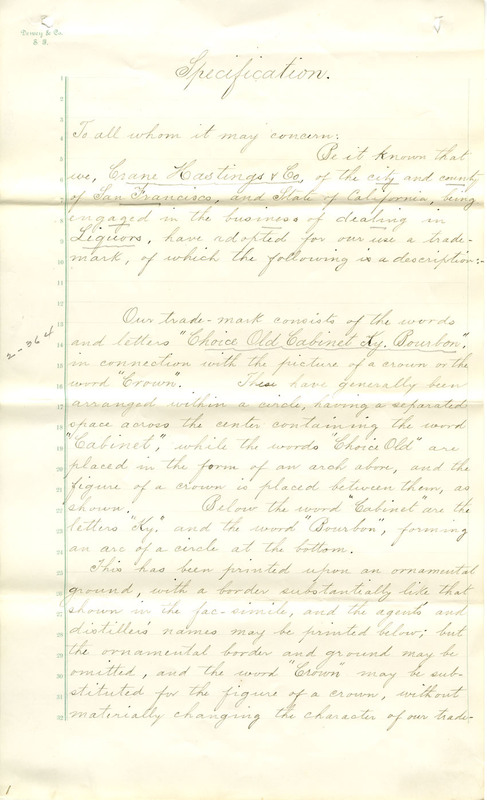 Dewey & Co.
S. F.
J
Specification.
To all whom it may concern:
Be it known that
we, Crane Hastings & Co. of the city and county
of San Francisco, and State of California, being
engaged in the business of dealing in
Liquors, have adopted for our use a trade-
mark, of which the following is a description:-
Our trade-mark consists of the words
and letters "Choice Old Cabinet Ky. Bourbon",
in connection with the picture of a crown or the
word "Crown". These have generally been
arranged within a circle, having a separated
space across the center containing the word
"Cabinet", while the words "Choice Old" are
placed in the form of an arch above, and the
figure of a crown is placed between them, as
shown. Below the word "Cabinet" are the
letters "Ky." and the word "Bourbon", forming
an arc of a circle at the bottom.
This has been printed upon an ornamental
ground, with a border substantially like that
shown in the fac-simile, and the agents and
distillers' names may be printed below; but
the ornamental border and ground may be
omitted, and the word "Crown" may be sub-
stituted for the figure of a crown, without
materially changing the character of our trade-
2-364
1